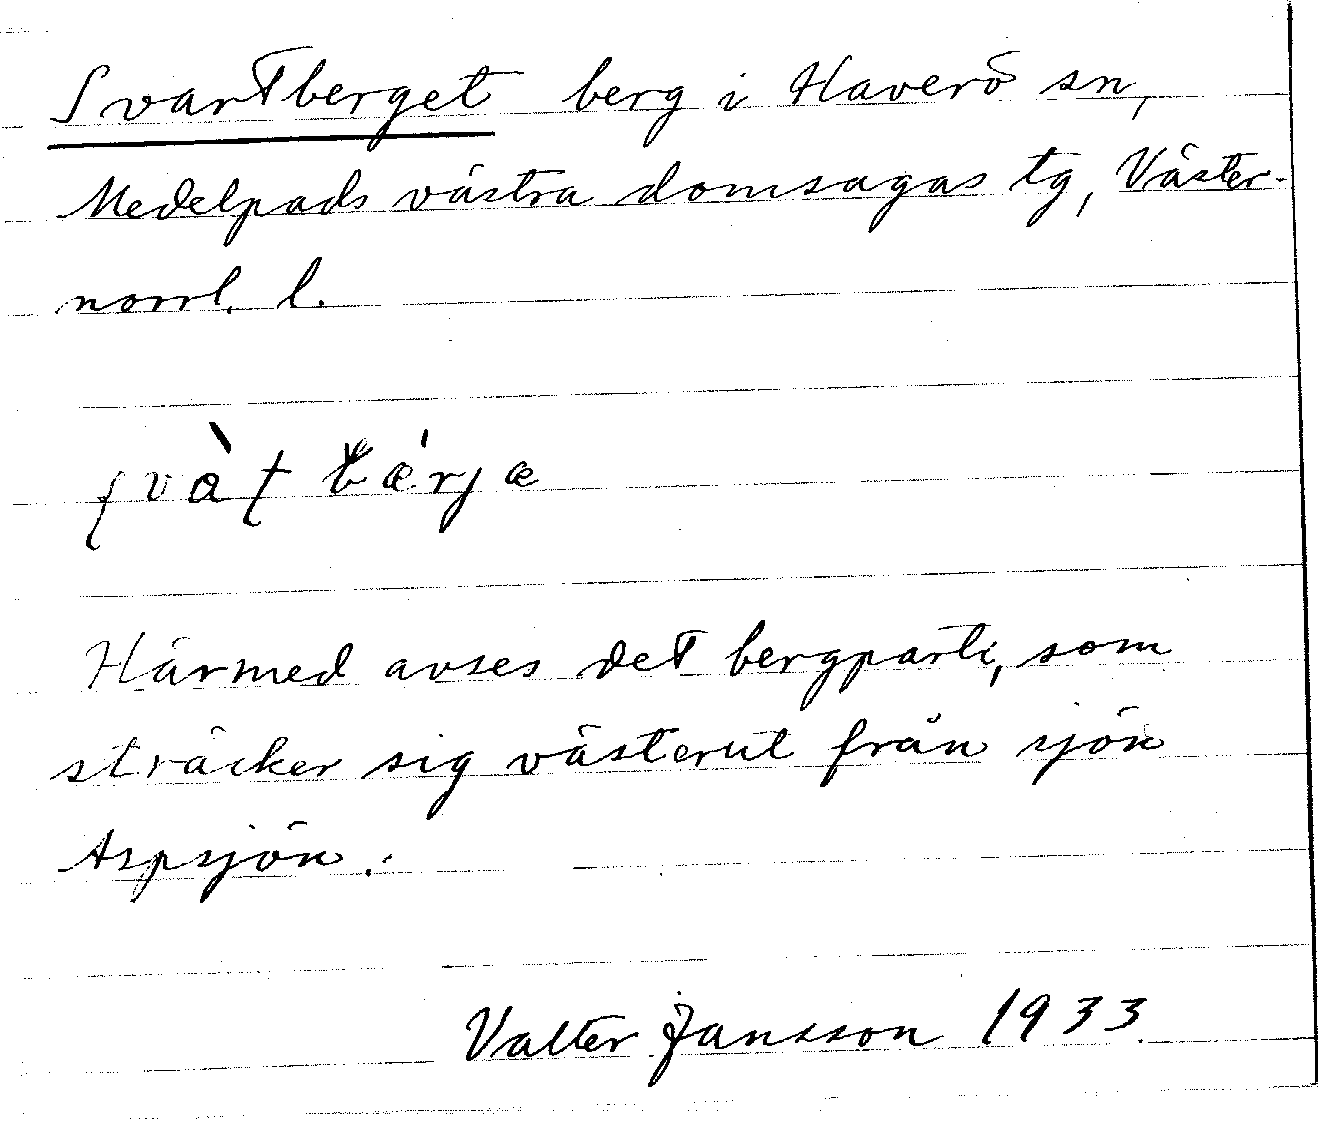 Svartberget berg i Haverö sn,
Medelpads västra domsagas tg, Väster-
norrl. l.
Härmed avses det bergparti, som
sträcker sig västerut från sjön
Aspsjön.
Valter Jansson 1933.